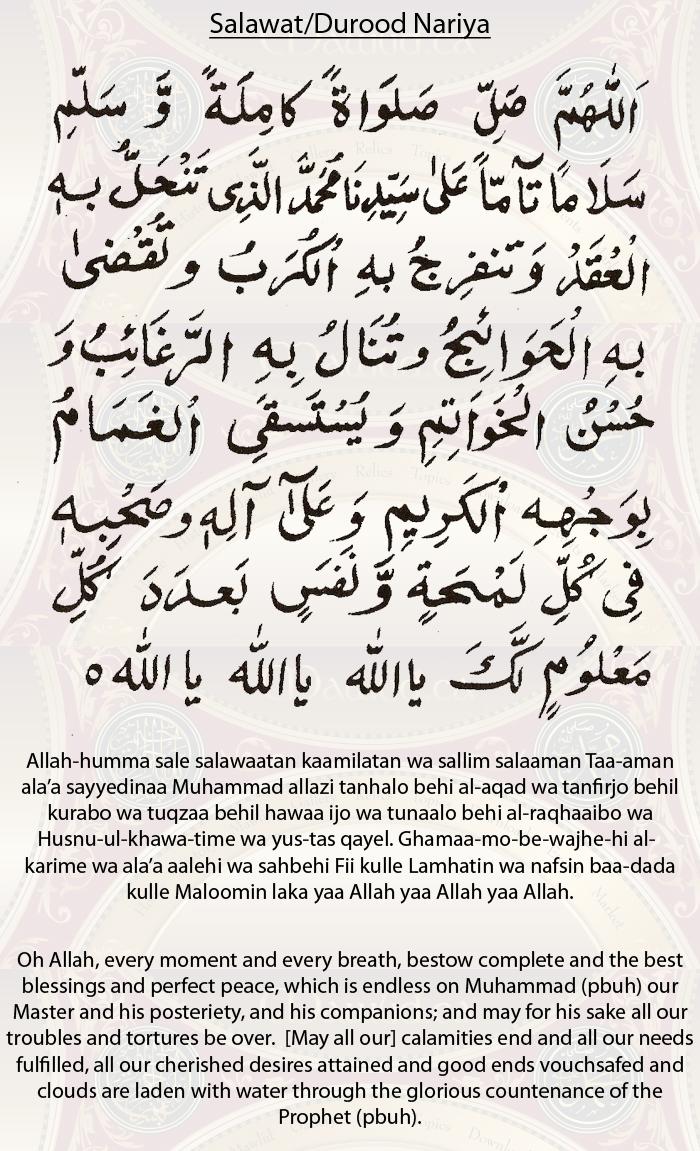 Salawat/Durood Nariya
اَللّٰهُمَّ صَلِّ صَلَوَاةً كَامِلَةً وَّ سَلِّمِ
سَلَامًا تَآمًّا عَلٰى سَيِّدِنَا مُحَمَّدَّ الَّذِى تَنْحَلُّ بِهٖ
الْعُقَدُ وَتَنفرِجُ بِهِ الْكُرَبُ وتُقْضىٰ
بِهِ الْحَوَائِجُ وتُنَالُ بِهِ الرَّغَائِبُ وَ
حُسْنُ الْخَوَاتِمِ وَ يُسْتَسقىَ الْغَمَامُ
بِوَجْهِهِ الْكَرِيمِ وَعَلىٰٓ آلِهٖ وصَحْبِهٖ
فِى كُلِّ لَمْحَةٍ وَّنَفَسٍ بَعدَدَ كُلِّ
مَعْلُومٍ لَّكَ يا الله يا الله يا الله ٥
Allah-humma sale salawaatan kaamilatan wa sallim salaaman Taa-aman
ala’a sayyedinaa Muhammad allazi tanhalo behi al-aqad wa tanfirjo behil
kurabo wa tuqzaa behil hawaa ijo wa tunaalo behi al-raqhaaibo wa
Husnu-ul-khawa-time wa yus-tas qayel. Ghamaa-mo-be-wajhe-hi al-
karime wa ala’a aalehi wa sahbehi Fii kulle Lamhatin wa nafsin baa-dada
kulle Maloomin laka yaa Allah yaa Allah yaa Allah.
Oh Allah, every moment and every breath, bestow complete and the best
blessings and perfect peace, which is endless on Muhammad (pbuh) our
Master and his posteriety, and his companions; and may for his sake all our
troubles and tortures be over. [May all our] calamities end and all our needs
fulfilled, all our cherished desires attained and good ends vouchsafed and
clouds are laden with water through the glorious countenance of the
Prophet (pbuh).